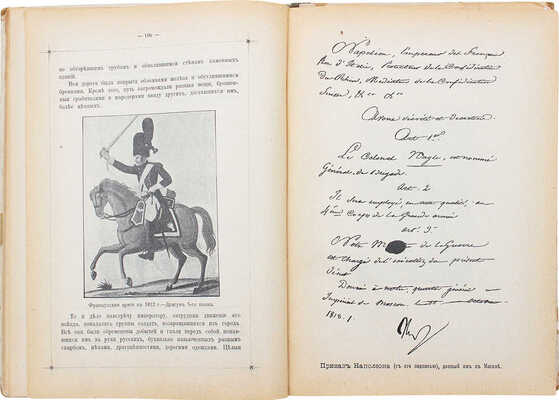 — 108 —
по обгорѣвшимъ трубамъ и обвалившимся стѣнамъ каменныхъ
зданій.
Вся дорога была покрыта обломками мебели и обуглившимися
бревнами. Кромѣ того, путь загромождали разныя вещи, брошен-
ныя грабителями и мародерами ввиду другихъ, доставшихся имъ,
болѣе цѣнныхъ.
Французская армія въ 1812 г.—Драгунъ 5-го полка.
То и дѣло навстрѣчу императору, затрудняя движеніе его
поѣзда, попадались группы солдатъ, возвращавшихся изъ города.
Всѣ они были обременены добычей и гнали передъ собой, понаб-
ивъ имъ на руки русскихъ, буквально навьюченныхъ разнымъ
скарбомъ, мѣхами, драгоцѣнностями, дорогими одеждами. Цѣлыя
Napoléon, Empereur des Français
Roi d'Italie, Protecteur de la Confédération
Du Rhin, Médiateur de la Confédération
Suisse, &a &a
Avons décrété et décretons
Art 1er
Le Colonel Nagle, est nommé
Général de Brigade
Art. 2
Il sera employé, en cette qualité, au
4eme Corps de la Grande armée
Art. 3e
Notre M de la Guerre
est chargé de l'exécution du présent
Décret
Donné à notre quartier général
Impérial de Moscou
Приказъ Наполеона (съ его подписью), данный имъ въ Москвѣ.